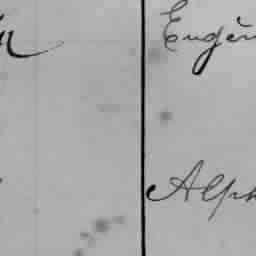 Eugèn
Alph